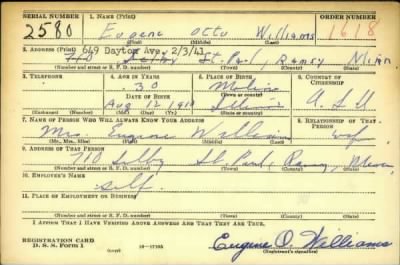 SERIAL NUMBER 1. NAME (Print) ORDER NUMBER
2580 Eugene Otto Williams 1618
(First) (Middle) (Last)
2. ADDRESS (Print) 649 Dayton Ave., 2/3/41
710 Selby St. Paul, Ramsey Minn
(Number and street or R. F. D. number) (Town) (County) (State)
3. TELEPHONE 4. AGE IN YEARS 5. PLACE OF BIRTH 6. COUNTRY OF CITIZENSHIP
30 Moline
DATE OF BIRTH (Town or county)
Aug 12 1910 Illinois U.S.A
(Exchange) (No.) (Mo.) (Day) (Yr.) (State or country)
7. NAME OF PERSON WHO WILL ALWAYS KNOW YOUR ADDRESS 8. RELATIONSHIP OF THAT PERSON
Mrs. Eugene Williams wife
(Mr., Mrs., Miss) (First) (Middle) (Last)
9. ADDRESS OF THAT PERSON
710 Selby St. Paul, Ramsey, Minn,
(Number and street or R. F. D. number) (Town) (County) (State)
10. EMPLOYER'S NAME
Self.
11. PLACE OF EMPLOYMENT OR BUSINESS
(Number and street or R. F. D. number) (Town) (County) (State)
I AFFIRM THAT I HAVE VERIFIED ABOVE ANSWERS AND THAT THEY ARE TRUE.
REGISTRATION CARD
D. S. S. Form 1 (over) 16—17105 Eugene O. Williams
(Registrant's signature)